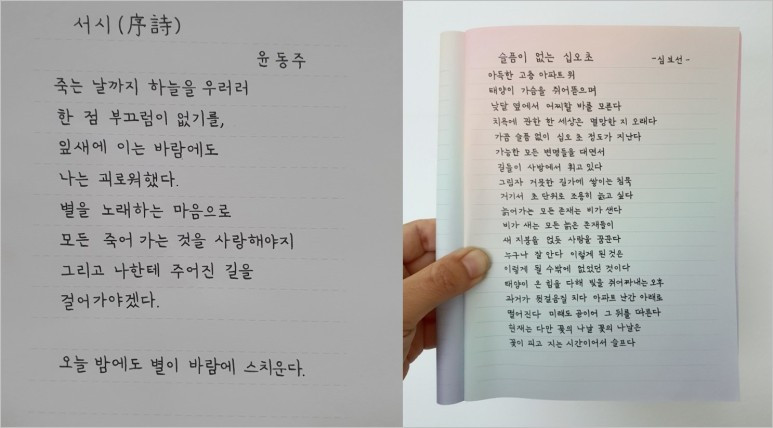 서시(序詩)
윤동주
죽는 날까지 하늘을 우러러
한 점 부끄럼이 없기를,
잎새에 이는 바람에도
나는 괴로워했다.
별을 노래하는 마음으로
모든 죽어 가는 것을 사랑해야지
그리고 나한테 주어진 길을
걸어가야겠다.
오늘 밤에도 별이 바람에 스치운다.
슬픔이 없는 십오 초
-심보선-
아득한 고층 아파트 위
태양이 가슴을 쥐어뜯으며
낮달 옆에서 어찌할 바를 모른다
치욕에 관한 한 세상은 멸망한 지 오래다
가끔 슬픔 없이 십오 초 정도가 지난다
가능한 모든 변명들을 대면서
길들이 사방에서 휘고 있다
그림자 거뭇한 길가에 쌓이는 침묵
거기서 초 단위로 조용히 늙고 싶다
늙어가는 모든 존재는 비가 샌다
비가 새는 모든 늙은 존재들이
새 지붕을 얹듯 사랑을 꿈꾼다
누구나 잘 안다 이렇게 된 것은
이렇게 될 수밖에 없었던 것이다
태양이 온 힘을 다해 빛을 쥐어짜내는 오후
과거가 뒷걸음질 치다 아파트 난간 아래로
떨어진다 미래도 곧이어 그 뒤를 따른다
현재는 다만 꽃의 나날 꽃의 나날은
꽃이 피고 지는 시간이어서 슬프다